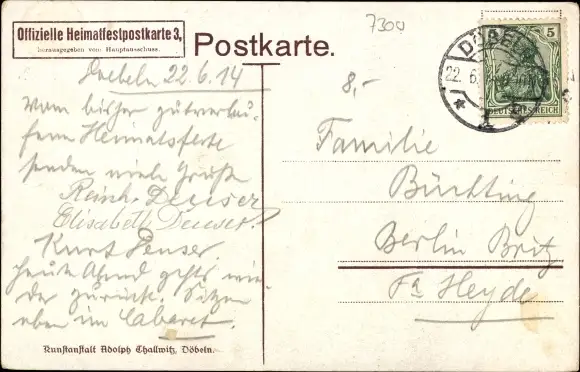 Offizielle Heimatfestpostkarte 3,
herausgegeben vom Hauptausschuss.
Postkarte.
7300
8,-
DÖBELN
22.6.
5
DEUTSCHES REICH
Doebeln 22.6.14
Vom bisher gutverlau-
fenen Heimatsfeste
senden viele Grüße
Reinh. Deuser
Elisabeth Deuser.
Kurt
Heute Abend gehts wie-
der zurück. Sitzen
eben im Cabaret.
Familie
Büchting
Berlin Britz
Fa Heyde
Kunstanstalt Adolph Thallwitz, Döbeln.